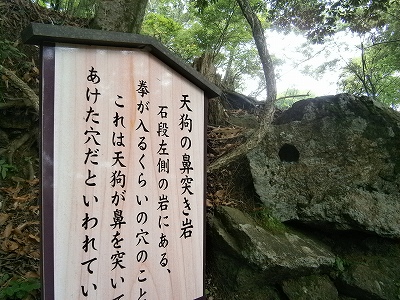 天狗の鼻突き岩
石段左側の岩にある、
拳が入るくらいの穴のこと
これは天狗が鼻を突いて
あけた穴だといわれてい